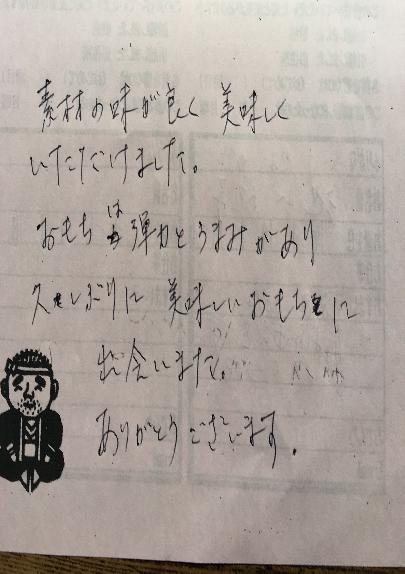 素材の味が良く 美味しく
いただけました。
おもちは弾力とうまみがあり
久しぶりに 美味しいおもちに
出会いました。
ありがとうございます。